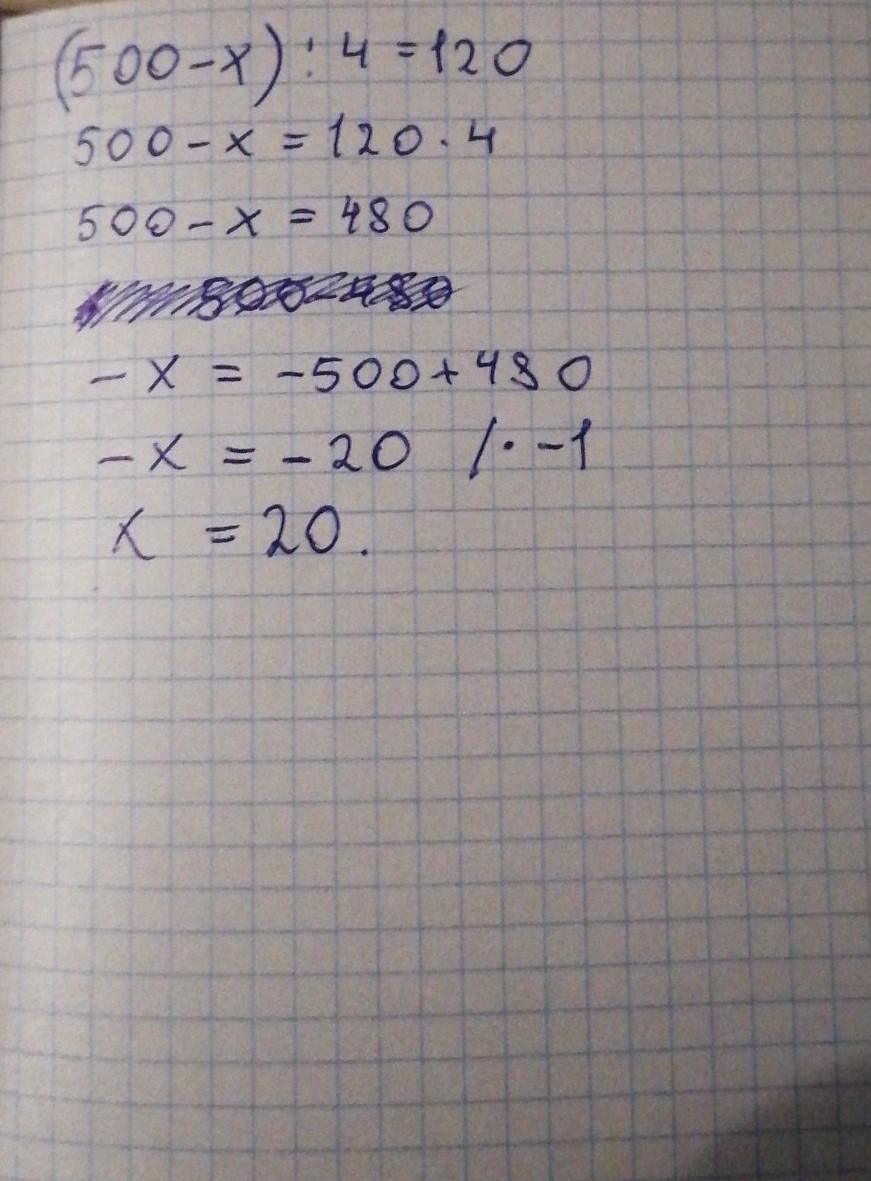 (500-x) : 4 = 120
500 - x = 120 · 4
500 - x = 480
- x = -500+480
- x = - 20 /· -1
x = 20.